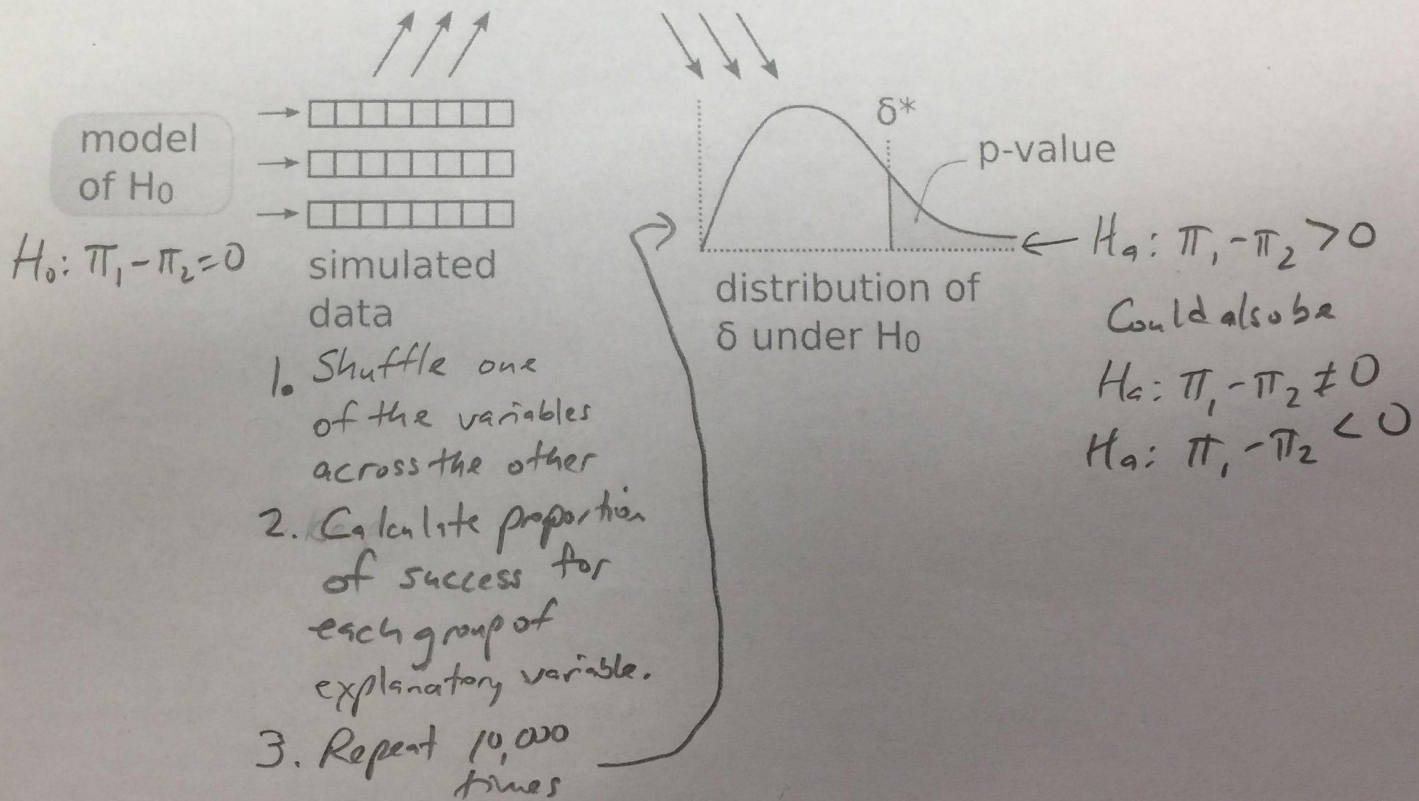 model
of H₀
H₀: π₁-π₂=0
simulated
data
1. Shuffle one
of the variables
across the other
2. Calculate proportion
of success for
each group of
explanatory variable.
3. Repeat 10,000
times
δ*
p-value
distribution of
δ under H₀
Hₐ: π₁-π₂ >0
Could also be
Hₐ: π₁-π₂ ≠ 0
Hₐ: π₁-π₂ < 0